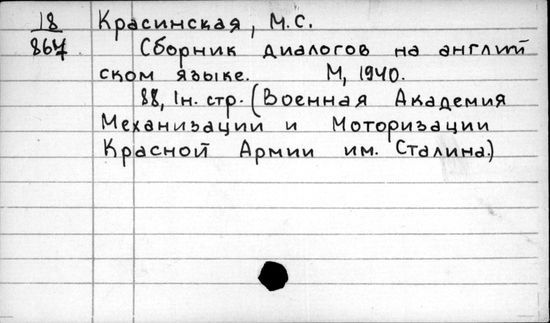 18 Красинская, М.С.
867 Сборник диалогов на англий
ском языке. М, 1940.
88, 1н. стр. (Военная Академия
Механизации и Моторизации
Красной Армии им. Сталина.)